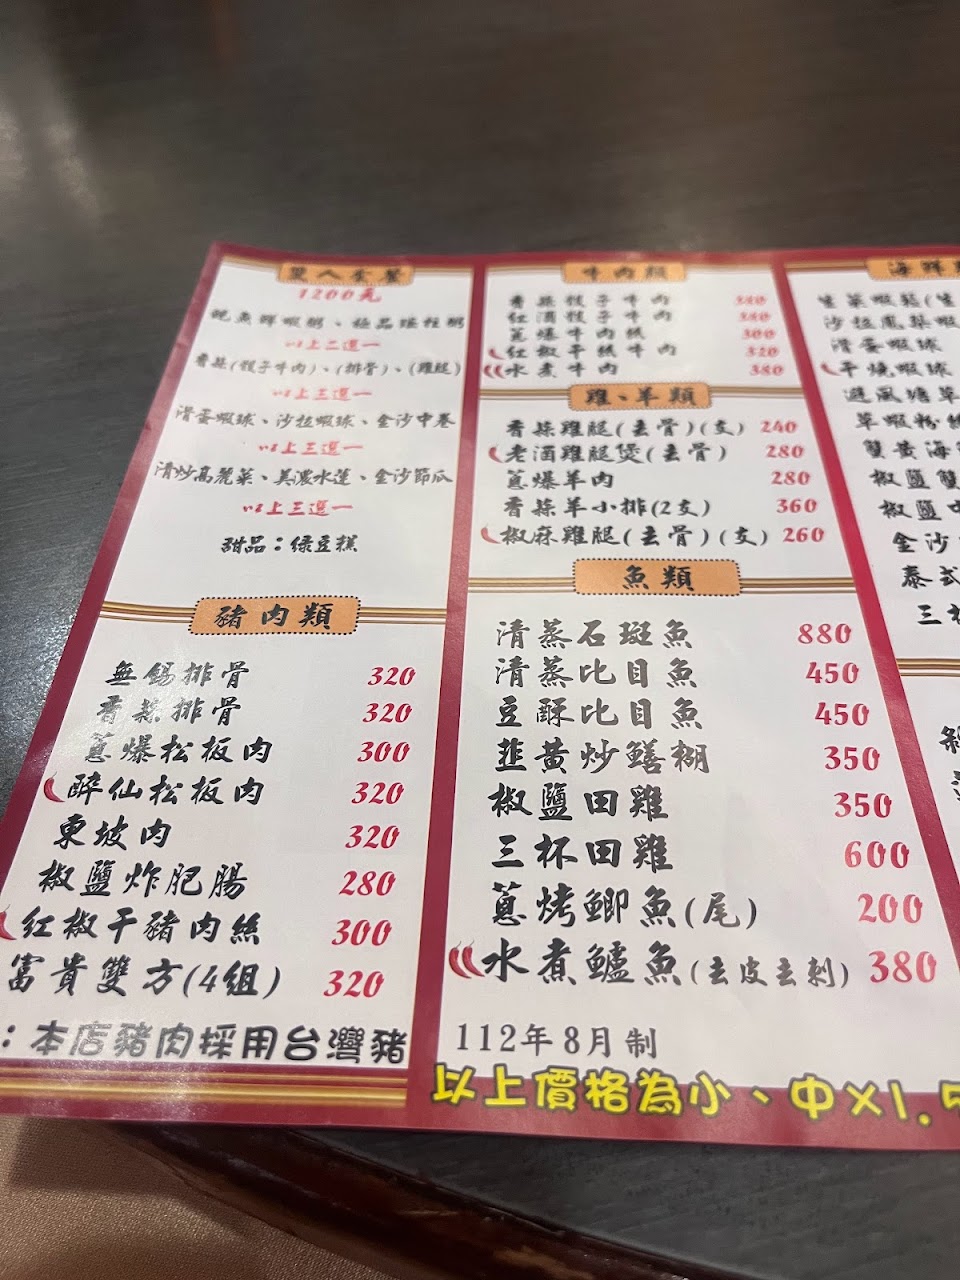 雙人套餐
1200元
鮑魚鮮蝦粥、極品瑤柱粥
以上二選一
香蒜(骰子牛肉)、(排骨)、(雞腿)
以上三選一
滑蛋蝦球、沙拉蝦球、金沙中卷
以上三選一
清炒高麗菜、美濃水蓮、金沙節瓜
以上三選一
甜品：綠豆糕
豬肉類
無錫排骨 320
香蒜排骨 320
蔥爆松板肉 300
醉仙松板肉 320
東坡肉 320
椒鹽炸肥腸 280
紅椒干豬肉絲 300
富貴雙方(4組) 320
：本店豬肉採用台灣豬
牛肉類
香蒜骰子牛肉 380
紅酒骰子牛肉 380
蔥爆牛肉絲 300
紅椒干絲牛肉 320
水煮牛肉 380
雞、羊類
香蒜雞腿(去骨)(支) 240
老酒雞腿煲(去骨) 280
蔥爆羊肉 280
香蒜羊小排(2支) 360
椒麻雞腿(去骨)(支) 260
魚類
清蒸石斑魚 880
清蒸比目魚 450
豆酥比目魚 450
韭黃炒鱔糊 350
椒鹽田雞 350
三杯田雞 600
蔥烤鯽魚(尾) 200
水煮鱸魚(去皮去刺) 380
112年8月制
以上價格為小、中×1.5
海鮮
生菜蝦鬆(生
沙拉鳳梨蝦
滑蛋蝦球
干燒蝦球
避風塘草
草蝦粉絲
蟹黃海
椒鹽雙
椒鹽中
金沙
泰式
三杯